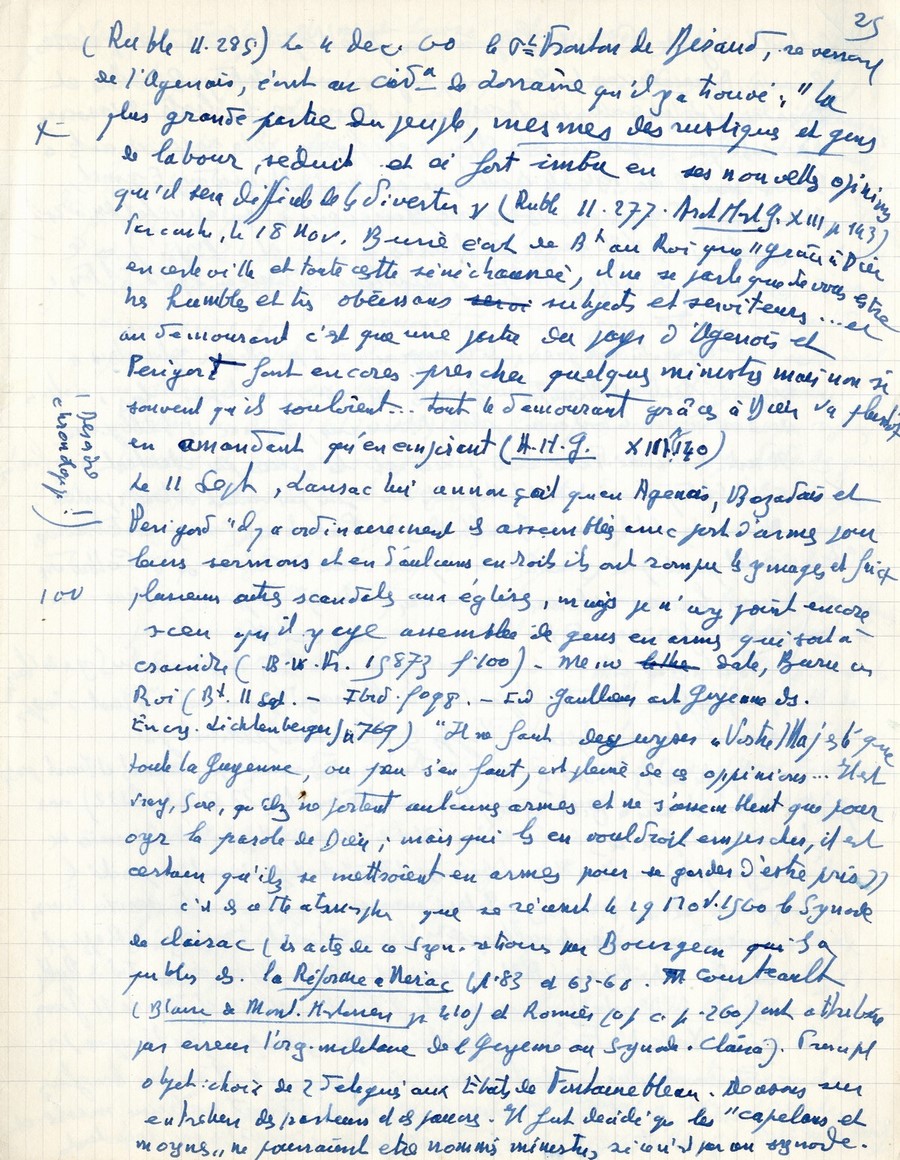 25
(Ruble II.285) Le 4 dec. 60 le Pt Fronton de Béraud, revenant
de l'Agenais, écrit au card. de Lorraine qu'il y a trouvé : "la
plus grande partie du peuple, mesmes des rustiques et gens
de labour, séduit et si fort imbu en ses nouvelles opinions
qu'il sera difficile de le divertir" (Ruble II. 277. Arch. Hist. G. XIII p 143)
Par contre, le 18 Nov. Burie écrit de Bx au Roi que "grâce à Dieu
en ceste ville et toute cette sénéchaucée, il ne se parle que de vous estre
très humbles et très obéissans subjects et serviteurs... et
au demourant c'est que une partie du pays d'Agenois et
Perigort font encores prescher quelques ministres mais non si
souvent qu'ils souloient... tout le demourant grâces à Dieu va plustôt
en amandant qu'en empirant (A.H.G. XIII 140)
Le 11 Sept, Lansac lui annonçait qu'en Agenais, Bazadais et
Perigord "il y a ordinairement des assemblées avec port d'armes pour
leurs sermons et en d'aulcuns endroits ils ont rompu les ymages et faict
plusieurs autres scandales aux églises, mais je n'ay point encore
sceu qu'il y aye assemblée de gens en armes qui soit à
craindre (B.N. Fr. 15873 f° 100) - Même date, Burie au
Roi (Bx. 11 Sept. - Ibid. f° 98. - Id art Guyenne ds.
Encyc. Lichtenberger, p 769) "Il ne faut desguyser à Vostre Majesté que
toute la Guyenne, ou peu s'en faut, est pleine de ces oppinions... Il est
vray, Sire, qu'ilz ne portent aulcunes armes et ne s'assemblent que pour
oyr la parole de Dieu ; mais qui les en vouldroit empescher, il est
certain qu'ilz se mettroient en armes pour se garder d'estre pris"
C'est ds cette atmosphère que se réunit le 19 Nov. 1560 le Synode
de Clairac (les actes de ce Syn. retrouvés par Bourgeon qui les a
publiés ds. la Réforme à Nérac (p. 83 et 63-68. Courteault
(Blaise de Mont. Historien p 410) et Romier (op. c. p. 260) ont attribué
par erreur l'org. militaire de la Guyenne au Synode. Clairac). Principal
objet : choix de 2 delegués aux Etats de Fontainebleau. Décisions sur
entretien des pasteurs et des pauvres. Il fut décidé que les "capelans et
moynes" ne pourraient etre nommés ministres, si ce n'est par un synode.
+
(Desordre
chronologie !)
100